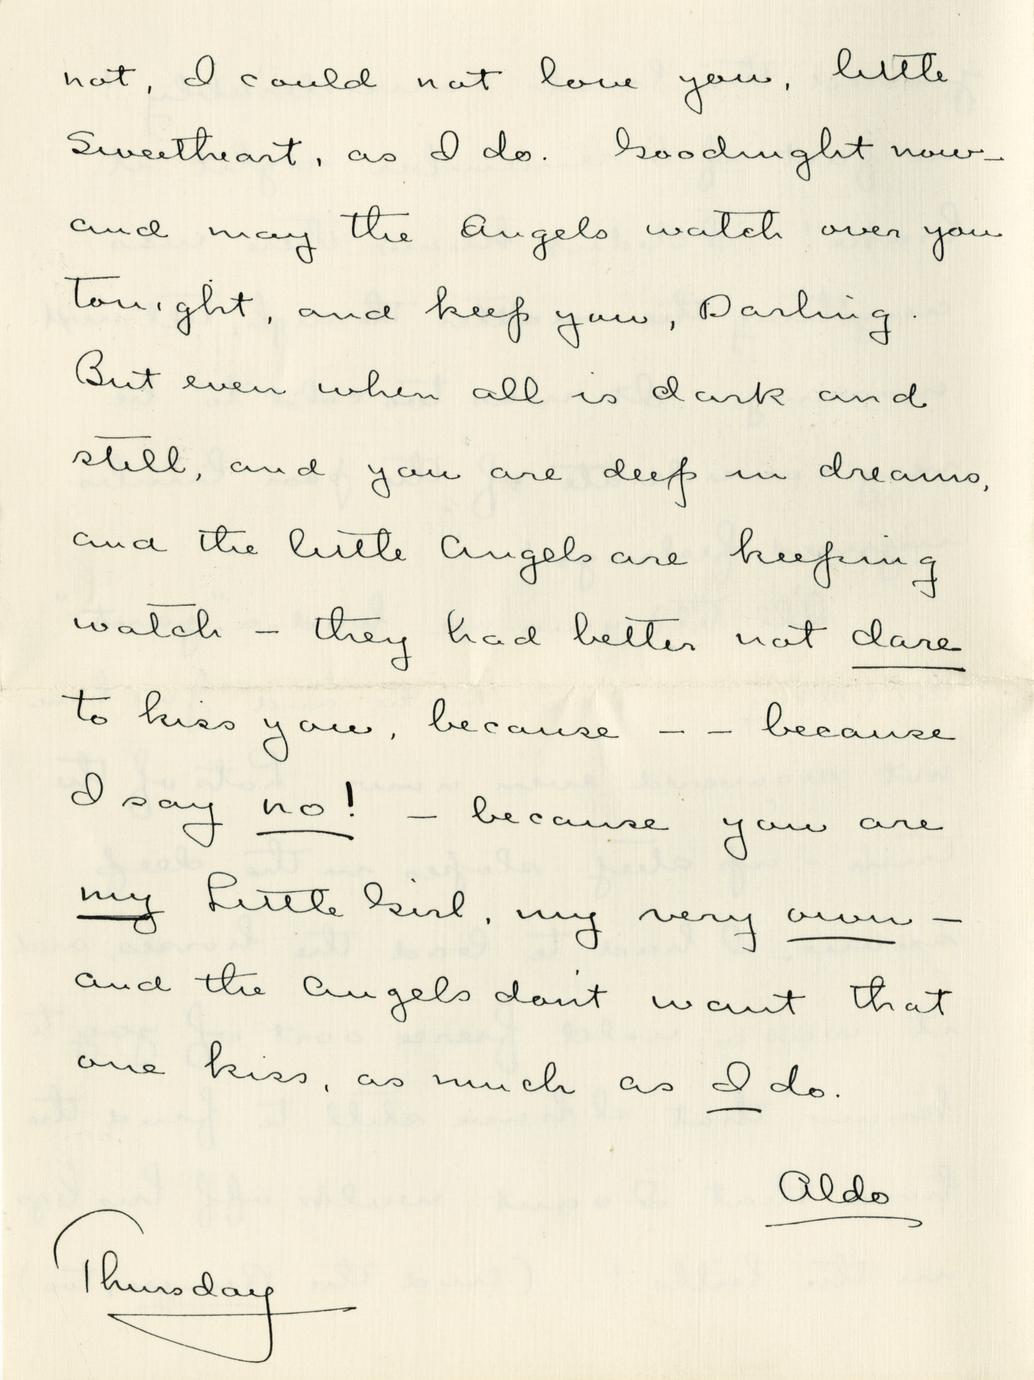 not, I could not love you, little
Sweetheart, as I do. Goodnight now—
and may the Angels watch over you
tonight, and keep you, Darling.
But even when all is dark and
still, and you are deep in dreams,
and the little Angels are keeping
watch – they had better not dare
to kiss you, because – – because
I say no! – because you are
my Little Girl, my very own –
and the Angels don't want that
one kiss, as much as I do.
Aldo
Thursday